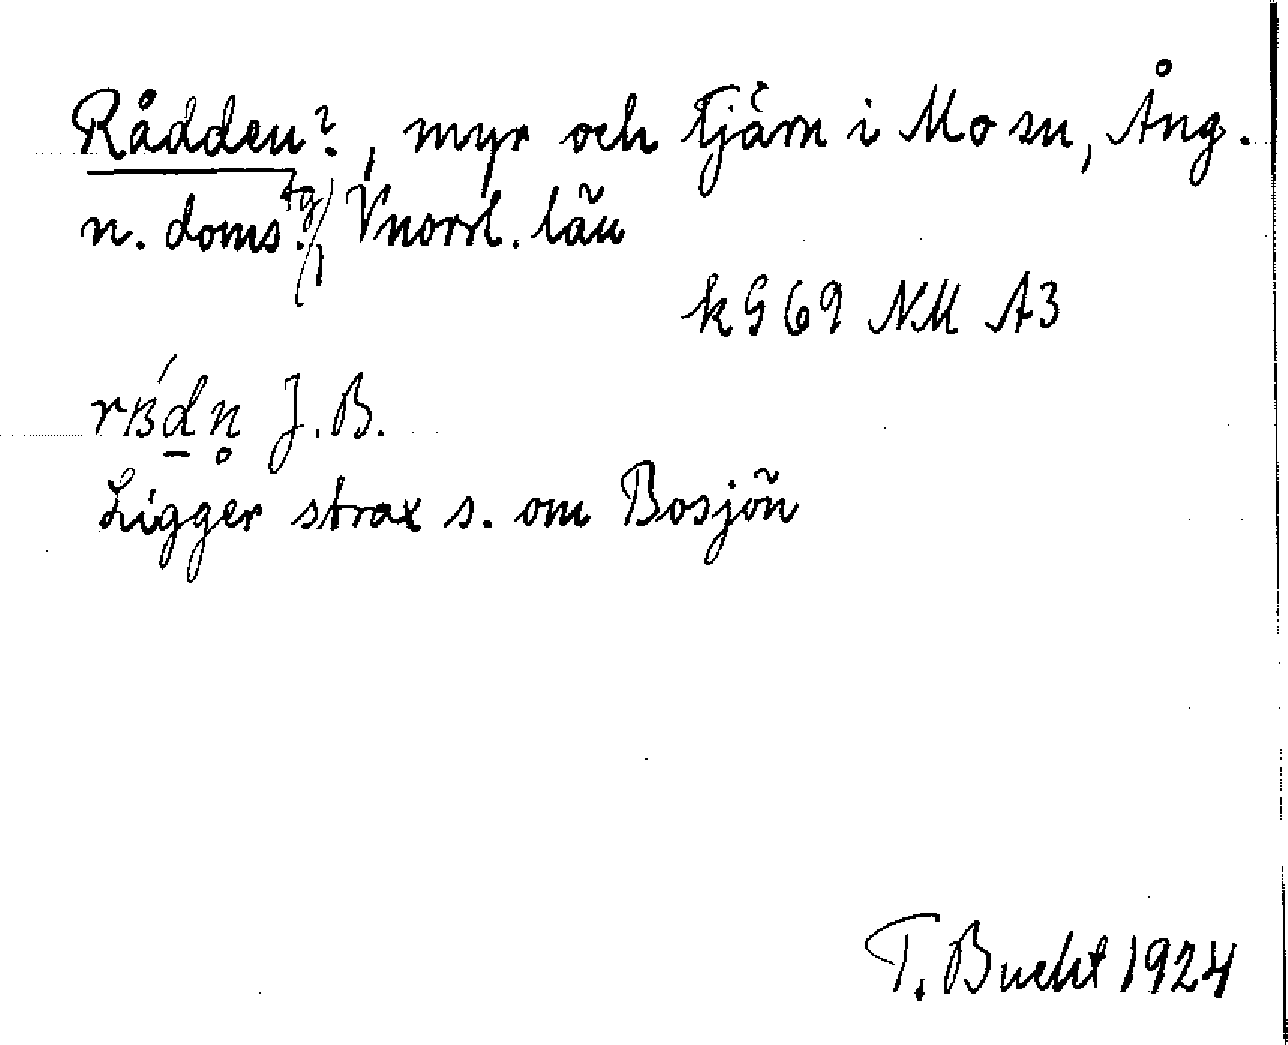 Rådden?, myr och tjärn i Mo sn, Ång.
n. doms.tg, Vnorrl. län
k G 69 NM A3
rʙ́d̲n̥ J.B.
Ligger strax s. om Bosjön
T. Bucht 1924